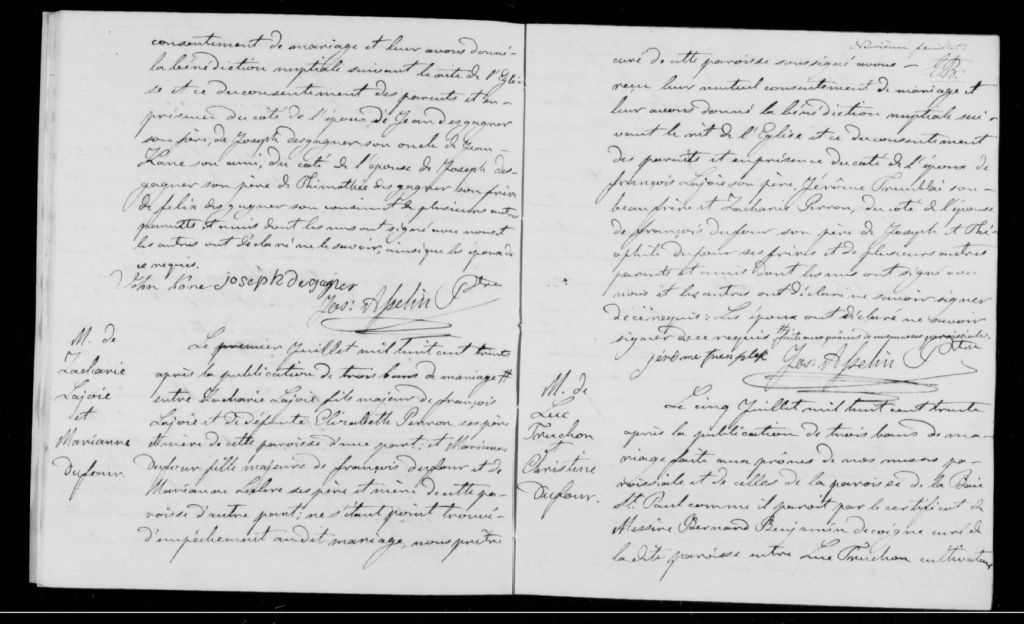 consentement de mariage et leur avons donné-
la bénédiction nuptiale suivant le rite de l'Egli-
se et ce du consentement des parents et en-
présence du coté de l'époux de Jean desgagner
son père, de Joseph desgagner son oncle de Jean-
Kane son ami, du coté de l'épouse de Joseph des-
gagner son père de Thimothée desgagner son frère
de felix desgagner son cousin et de plusieurs autres
parents et amis dont les uns ont signé avec nous et
les autres ont déclaré ne le savoir, ainsi que les époux de
ce requis.
John Kane joseph degagner
Jos: Asselin Ptre
M. de
Zacharie
Lajoie
et
Marianne
Dufour.
Le premier Juillet mil huit cent trente
après la publication de trois bans de mariage #
entre Zacharie Lajoie fils majeur de françois
Lajoie et de défunte Elizabeth Perron ses père
et mère de cette paroisse d'une part; et Marianne
Dufour fille majeure de françois dufour et de
Marianne Leclerc ses père et mère de cette pa-
roisse d'autre part; ne s'étant point trouvé-
d'empêchement audit mariage, nous prêtre
curé de cette paroisse soussigné avons-
reçu leur mutuel consentement de mariage et
leur avons donné la bénédiction nuptiale sui-
vant le rit de l'Eglise et ce du consentement
des parents et en présence du coté de l'époux de
françois Lajoie son père, Jérôme Tremblai son-
beau frère et Zacharie Perron, du coté de l'épouse
de françois dufour son père de Joseph et Thé-
ophile dufour ses frères et de plusieurs autres
parents et amis dont les uns ont signé avec
nous et les autres ont déclaré ne savoir signer
de ce requis: Les époux ont déclaré ne savoir
signer de ce requis # faite aux prônes de nos messes paroissiales
jérôme Jos: Asselin Ptre
M. de
Luc
Truchon
et
Christine
Dufour.
Le cinq Juillet mil huit cent trente
après la publication de trois bans de ma-
riage faite aux prônes de nos messes pa-
roissiale et de celles de la paroisse de la Baie
St. Paul comme il paroit par le certificat de
Messire Bernard Benjamin decoigne curé de
la dite paroisse entre Luc Truchon cultivateur